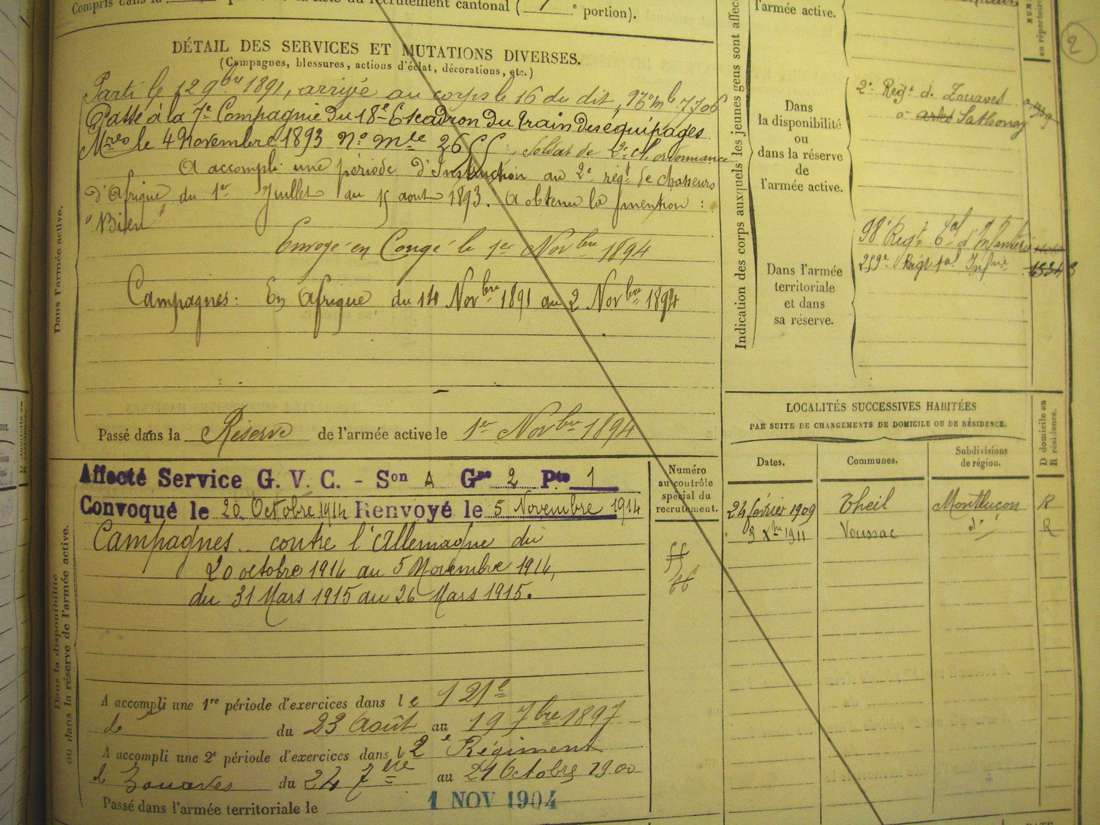 Compris dans la
du recrutement cantonal (
e portion).
DÉTAIL DES SERVICES ET MUTATIONS DIVERSES.
(Campagnes, blessures, actions d'éclat, décorations, etc.)
Parti le 12 9bre 1891, arrivé au corps le 16 du dit, No Mle 7706
Passé à la 7e Compagnie du 18e Escadron du train des équipages
Mres le 4 Novembre 1893 No Mle 26 : Soldat de 2e cl. ordonnance
A accompli une période d'Instruction au 2e régt de chasseurs
d'Afrique du 1er Juillet au 15 aout 1893. A obtenu la mention :
"Bien"
Envoyé en Congé le 1er Novbre 1894
Campagnes : En Afrique du 14 Novbre 1891 au 2 Novbre 1894
Passé dans la Réserve de l'armée active le 1er Novbre 1894
Dans l'armée active.
Affecté Service G. V. C. - Son A Gpe 2 Pte 1
Convoqué le 20 Octobre 1914 Renvoyé le 5 Novembre 1914
Campagnes contre l'Allemagne du
20 octobre 1914 au 5 Novembre 1914,
du 31 Mars 1915 au 26 Mars 1915.
A accompli une 1re période d'exercices dans le 121e
de du 23 Août au 19 7bre 1897
A accompli une 2e période d'exercices dans le 2e Régiment
de Zouaves du 24 7bre au 21 Octobre 1900
Passé dans l'armée territoriale le 1 NOV 1904
Dans la disponibilité
ou dans la réserve de l'armée active.
Numéro
au contrôle
spécial du
recrutement.
Indication des corps auxquels les jeunes gens sont affec
l'armée active.
en répertoire
2
Dans
la disponibilité
ou
dans la réserve
de
l'armée active.
2e Régt de Zouaves
à Sathonay
Dans l'armée
territoriale
et dans
sa réserve.
98e Régt Tal d'Infanterie
259e Régt Tal Infrie
LOCALITÉS SUCCESSIVES HABITÉES
PAR SUITE DE CHANGEMENTS DE DOMICILE OU DE RÉSIDENCE.
Dates.
Communes.
Subdivisions
de région.
D domicile ou
R résidence.
24 février 1909 Theil Montluçon R
3 Xbre 1911 Voussac do R